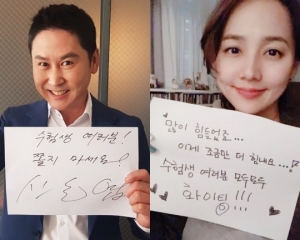 수험생 여러분!
쫄지 마세요~!
많이 힘들었죠...
이제 조금만 더 힘내요...!
수험생 여러분 모두모두
화이팅!!!